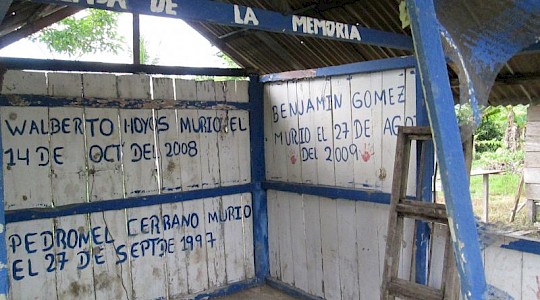 DE LA MEMORIA
WALBERTO HOYOS MURIO EL
14 DE OCT DEL 2008
PEDRONEL CERRANO MURIO
EL 27 DE SEPT DE 1997
BENJAMIN GOMEZ
MURIO EL 27 DE AGO
DEL 2009